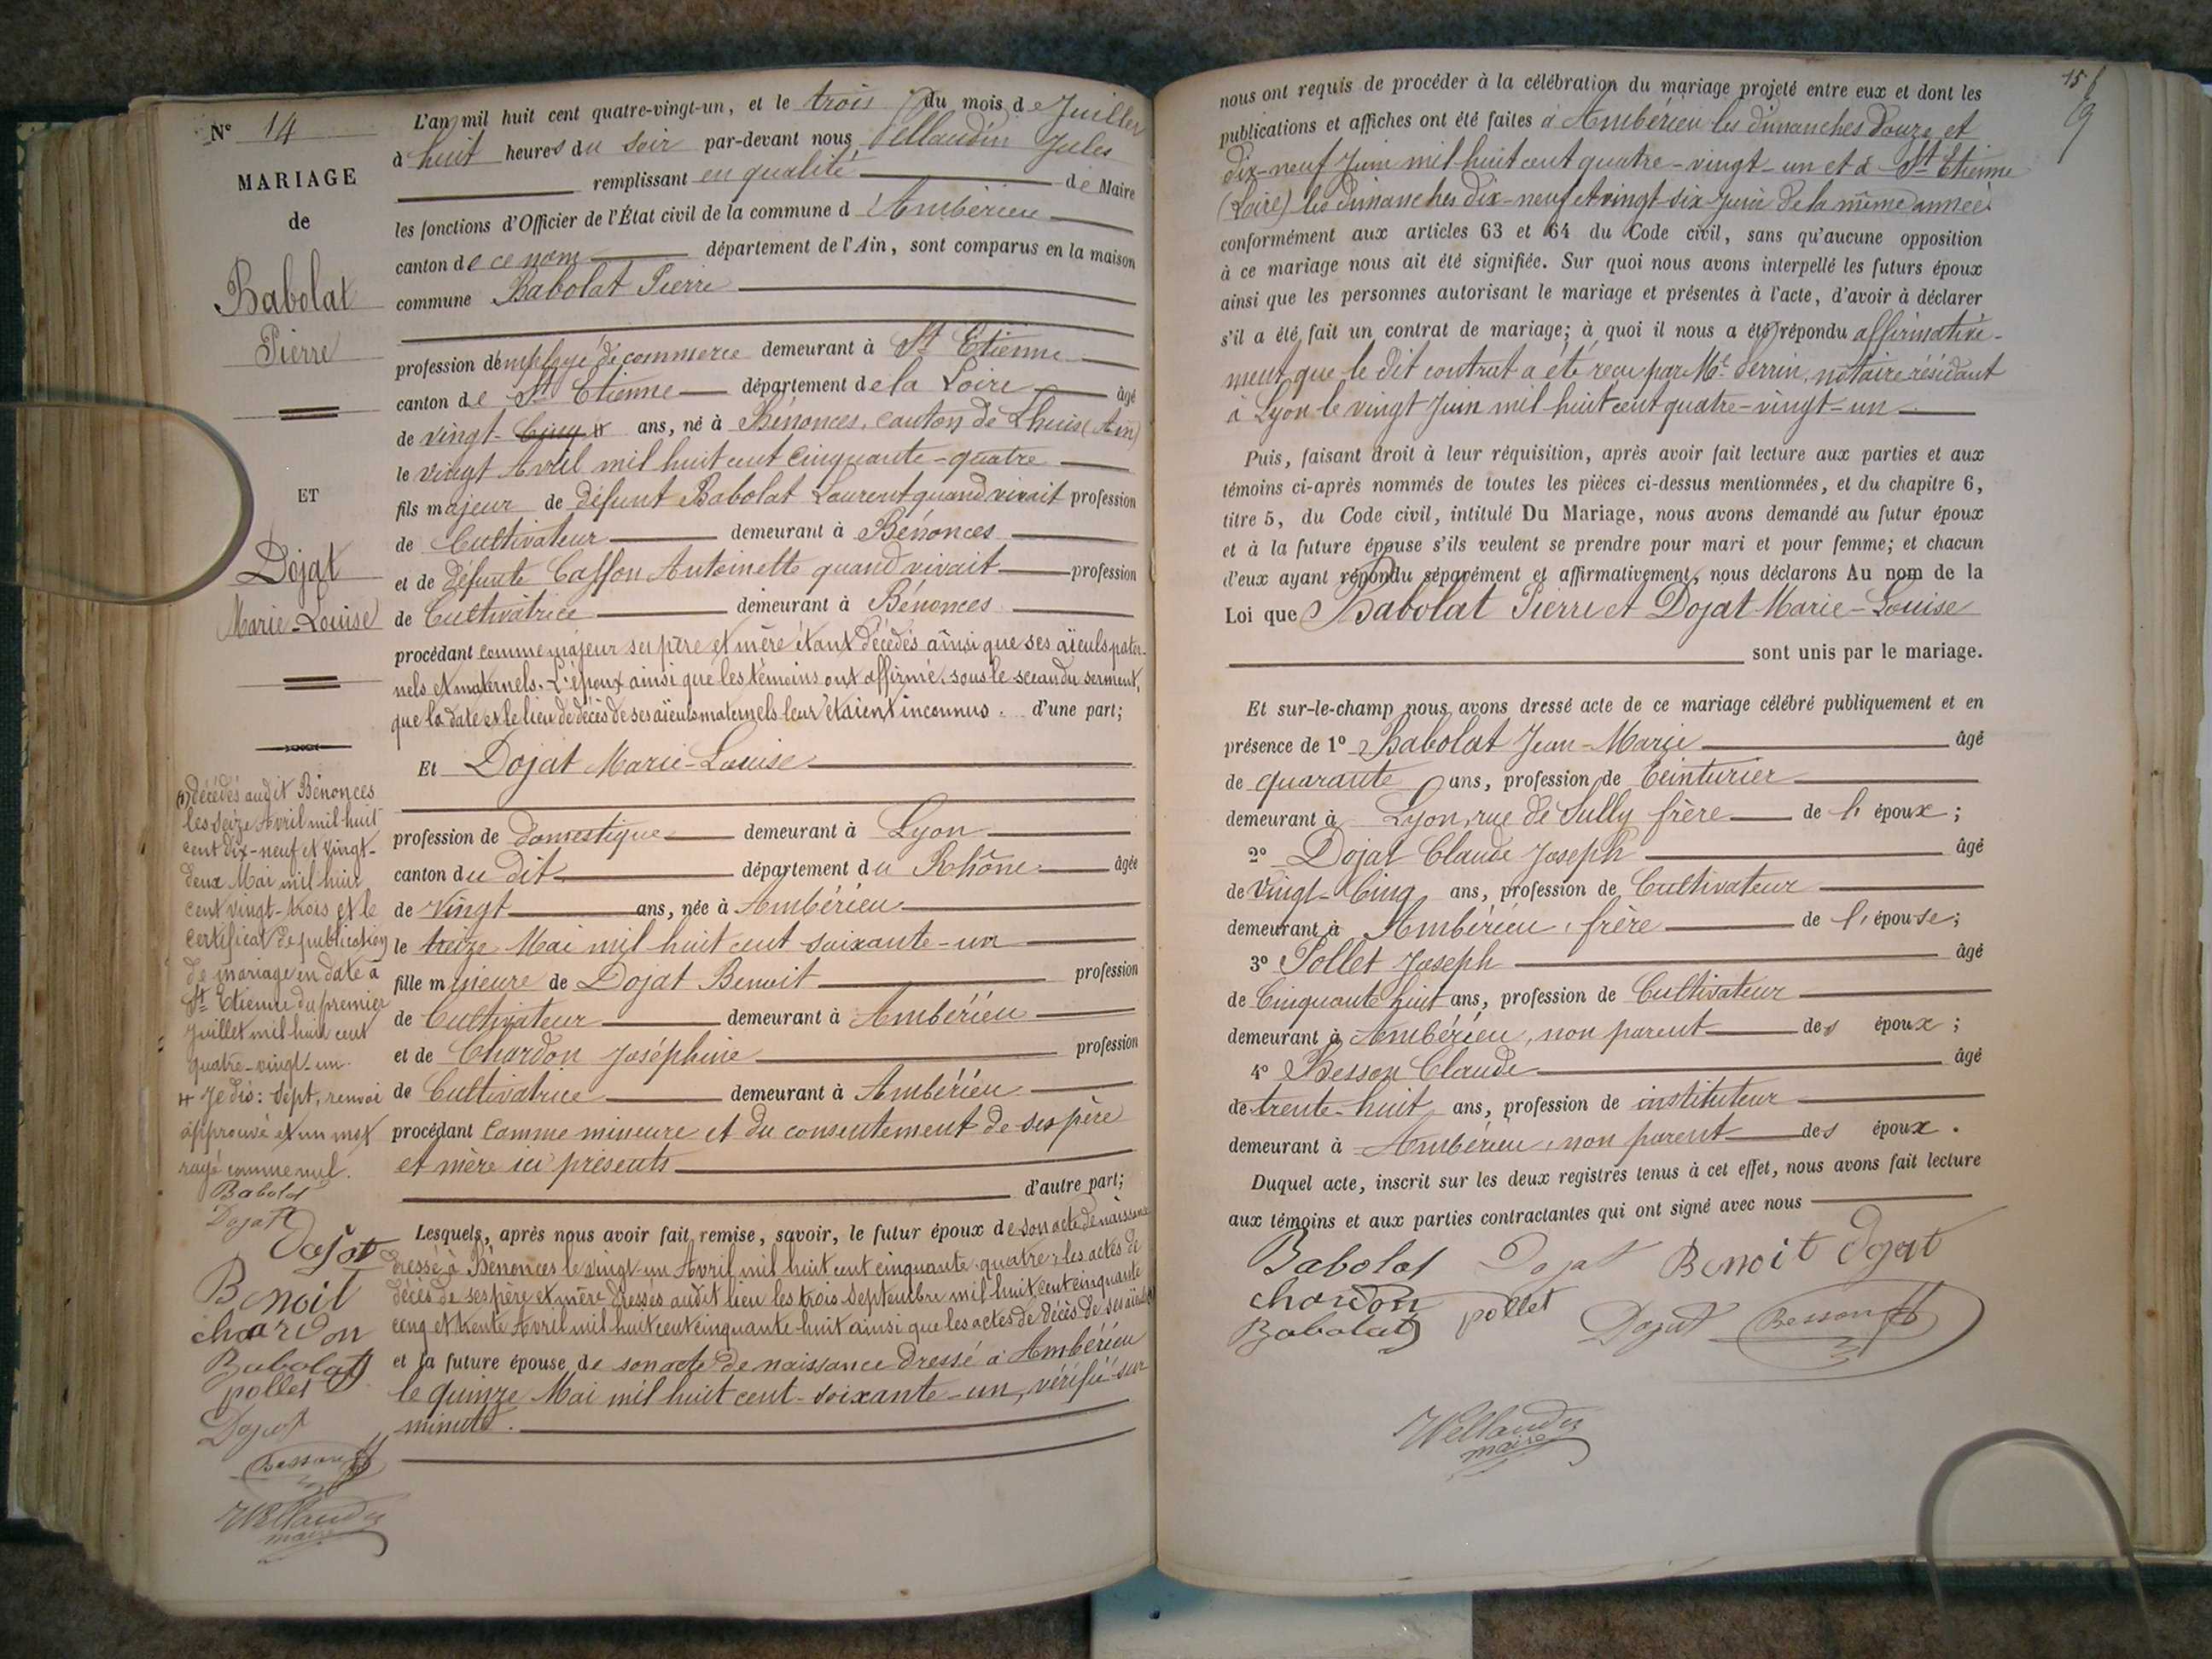 N° 14
MARIAGE
de
Babolat
Pierre
ET
Dojat
Marie-Louise
(1) décédés audit Bénonces
les seize Avril mil huit
cent dix-neuf et vingt-
deux Mai mil huit
cent vingt-trois et le
certificat de publication
de mariage en date à
St Etienne du premier
Juillet mil huit cent
quatre-vingt-un.
# Je dis : Sept, renvoi
approuvé et un mot
rayé comme nul.
Babolat
Dojat
Dojat
Benoit
chardon
Babolat
pollet
Dojat
Besson
Vellaudin
maire
L'an mil huit cent quatre-vingt-un, et le trois du mois de Juillet
à huit heures du soir par-devant nous Vellaudin Jules
remplissant en qualité de Maire
les fonctions d'Officier de l'État civil de la commune d'Ambérieu
canton de ce nom département de l'Ain, sont comparus en la maison
commune Babolat Pierre
profession d'employé de commerce demeurant à St Etienne
canton de St Etienne département de la Loire âgé
de vingt-Cinq # ans, né à Bénonces, canton de Lhuis (Ain)
le vingt Avril mil huit cent cinquante-quatre
fils majeur de défunt Babolat Laurent quand vivait profession
de Cultivateur demeurant à Bénonces
et de défunte Caffon Antoinette quand vivait profession
de Cultivatrice demeurant à Bénonces
procédant comme majeur ses père et mère étant décédés ainsi que ses aïeuls pater-
nels et maternels. L'époux ainsi que les témoins ont affirmé, sous le sceau du serment,
que la date et le lieu de décès de ses aïeuls maternels leur étaient inconnus. d'une part;
Et Dojat Marie-Louise
profession de domestique demeurant à Lyon
canton du dit département du Rhône âgée
de vingt ans, née à Ambérieu
le treize Mai mil huit cent soixante-un
fille mineure de Dojat Benoit profession
de Cultivateur demeurant à Ambérieu
et de Chardon Joséphine profession
de Cultivatrice demeurant à Ambérieu
procédant comme mineure et du consentement de ses père
et mère ici présents
d'autre part;
Lesquels, après nous avoir fait remise, savoir, le futur époux de son acte de naissance
dressé à Bénonces le vingt-un Avril mil huit cent cinquante-quatre, les actes de
décès de ses père et mère dressés audit lieu les trois Septembre mil huit cent cinquante
cinq et trente Avril mil huit cent cinquante-huit ainsi que les actes de décès de ses aïeuls (1)
et la future épouse de son acte de naissance dressé à Ambérieu
le quinze Mai mil huit cent-soixante-un, vérifié sur
minute.
15
nous ont requis de procéder à la célébration du mariage projeté entre eux et dont les
publications et affiches ont été faites à Ambérieu les dimanches douze et
dix-neuf Juin mil huit cent quatre-vingt-un et à St Etienne
(Loire) les dimanches dix-neuf et vingt-six Juin de la même année
conformément aux articles 63 et 64 du Code civil, sans qu'aucune opposition
à ce mariage nous ait été signifiée. Sur quoi nous avons interpellé les futurs époux
ainsi que les personnes autorisant le mariage et présentes à l'acte, d'avoir à déclarer
s'il a été fait un contrat de mariage; à quoi il nous a été répondu affirmative-
ment, que le dit contrat a été reçu par Me Perrin, notaire résidant
à Lyon le vingt Juin mil huit cent quatre-vingt-un
Puis, faisant droit à leur réquisition, après avoir fait lecture aux parties et aux
témoins ci-après nommés de toutes les pièces ci-dessus mentionnées, et du chapitre 6,
titre 5, du Code civil, intitulé Du Mariage, nous avons demandé au futur époux
et à la future épouse s'ils veulent se prendre pour mari et pour femme; et chacun
d'eux ayant répondu séparément et affirmativement, nous déclarons Au nom de la
Loi que Babolat Pierre et Dojat Marie-Louise
sont unis par le mariage.
Et sur-le-champ nous avons dressé acte de ce mariage célébré publiquement et en
présence de 1° Babolat Jean-Marie âgé
de quarante ans, profession de Teinturier
demeurant à Lyon, rue de Sully frère de l'époux;
2° Dojat Claude Joseph âgé
de vingt-Cinq ans, profession de Cultivateur
demeurant à Ambérieu, frère de l'épouse;
3° Pollet Joseph âgé
de Cinquante huit ans, profession de Cultivateur
demeurant à Ambérieu, non parent des époux;
4° Besson Claude âgé
de trente-huit ans, profession de instituteur
demeurant à Ambérieu, non parent des époux.
Duquel acte, inscrit sur les deux registres tenus à cet effet, nous avons fait lecture
aux témoins et aux parties contractantes qui ont signé avec nous
Babolat Dojat Benoit Dojat
chardon pollet
Babolat Dojat Besson
Vellaudin
maire